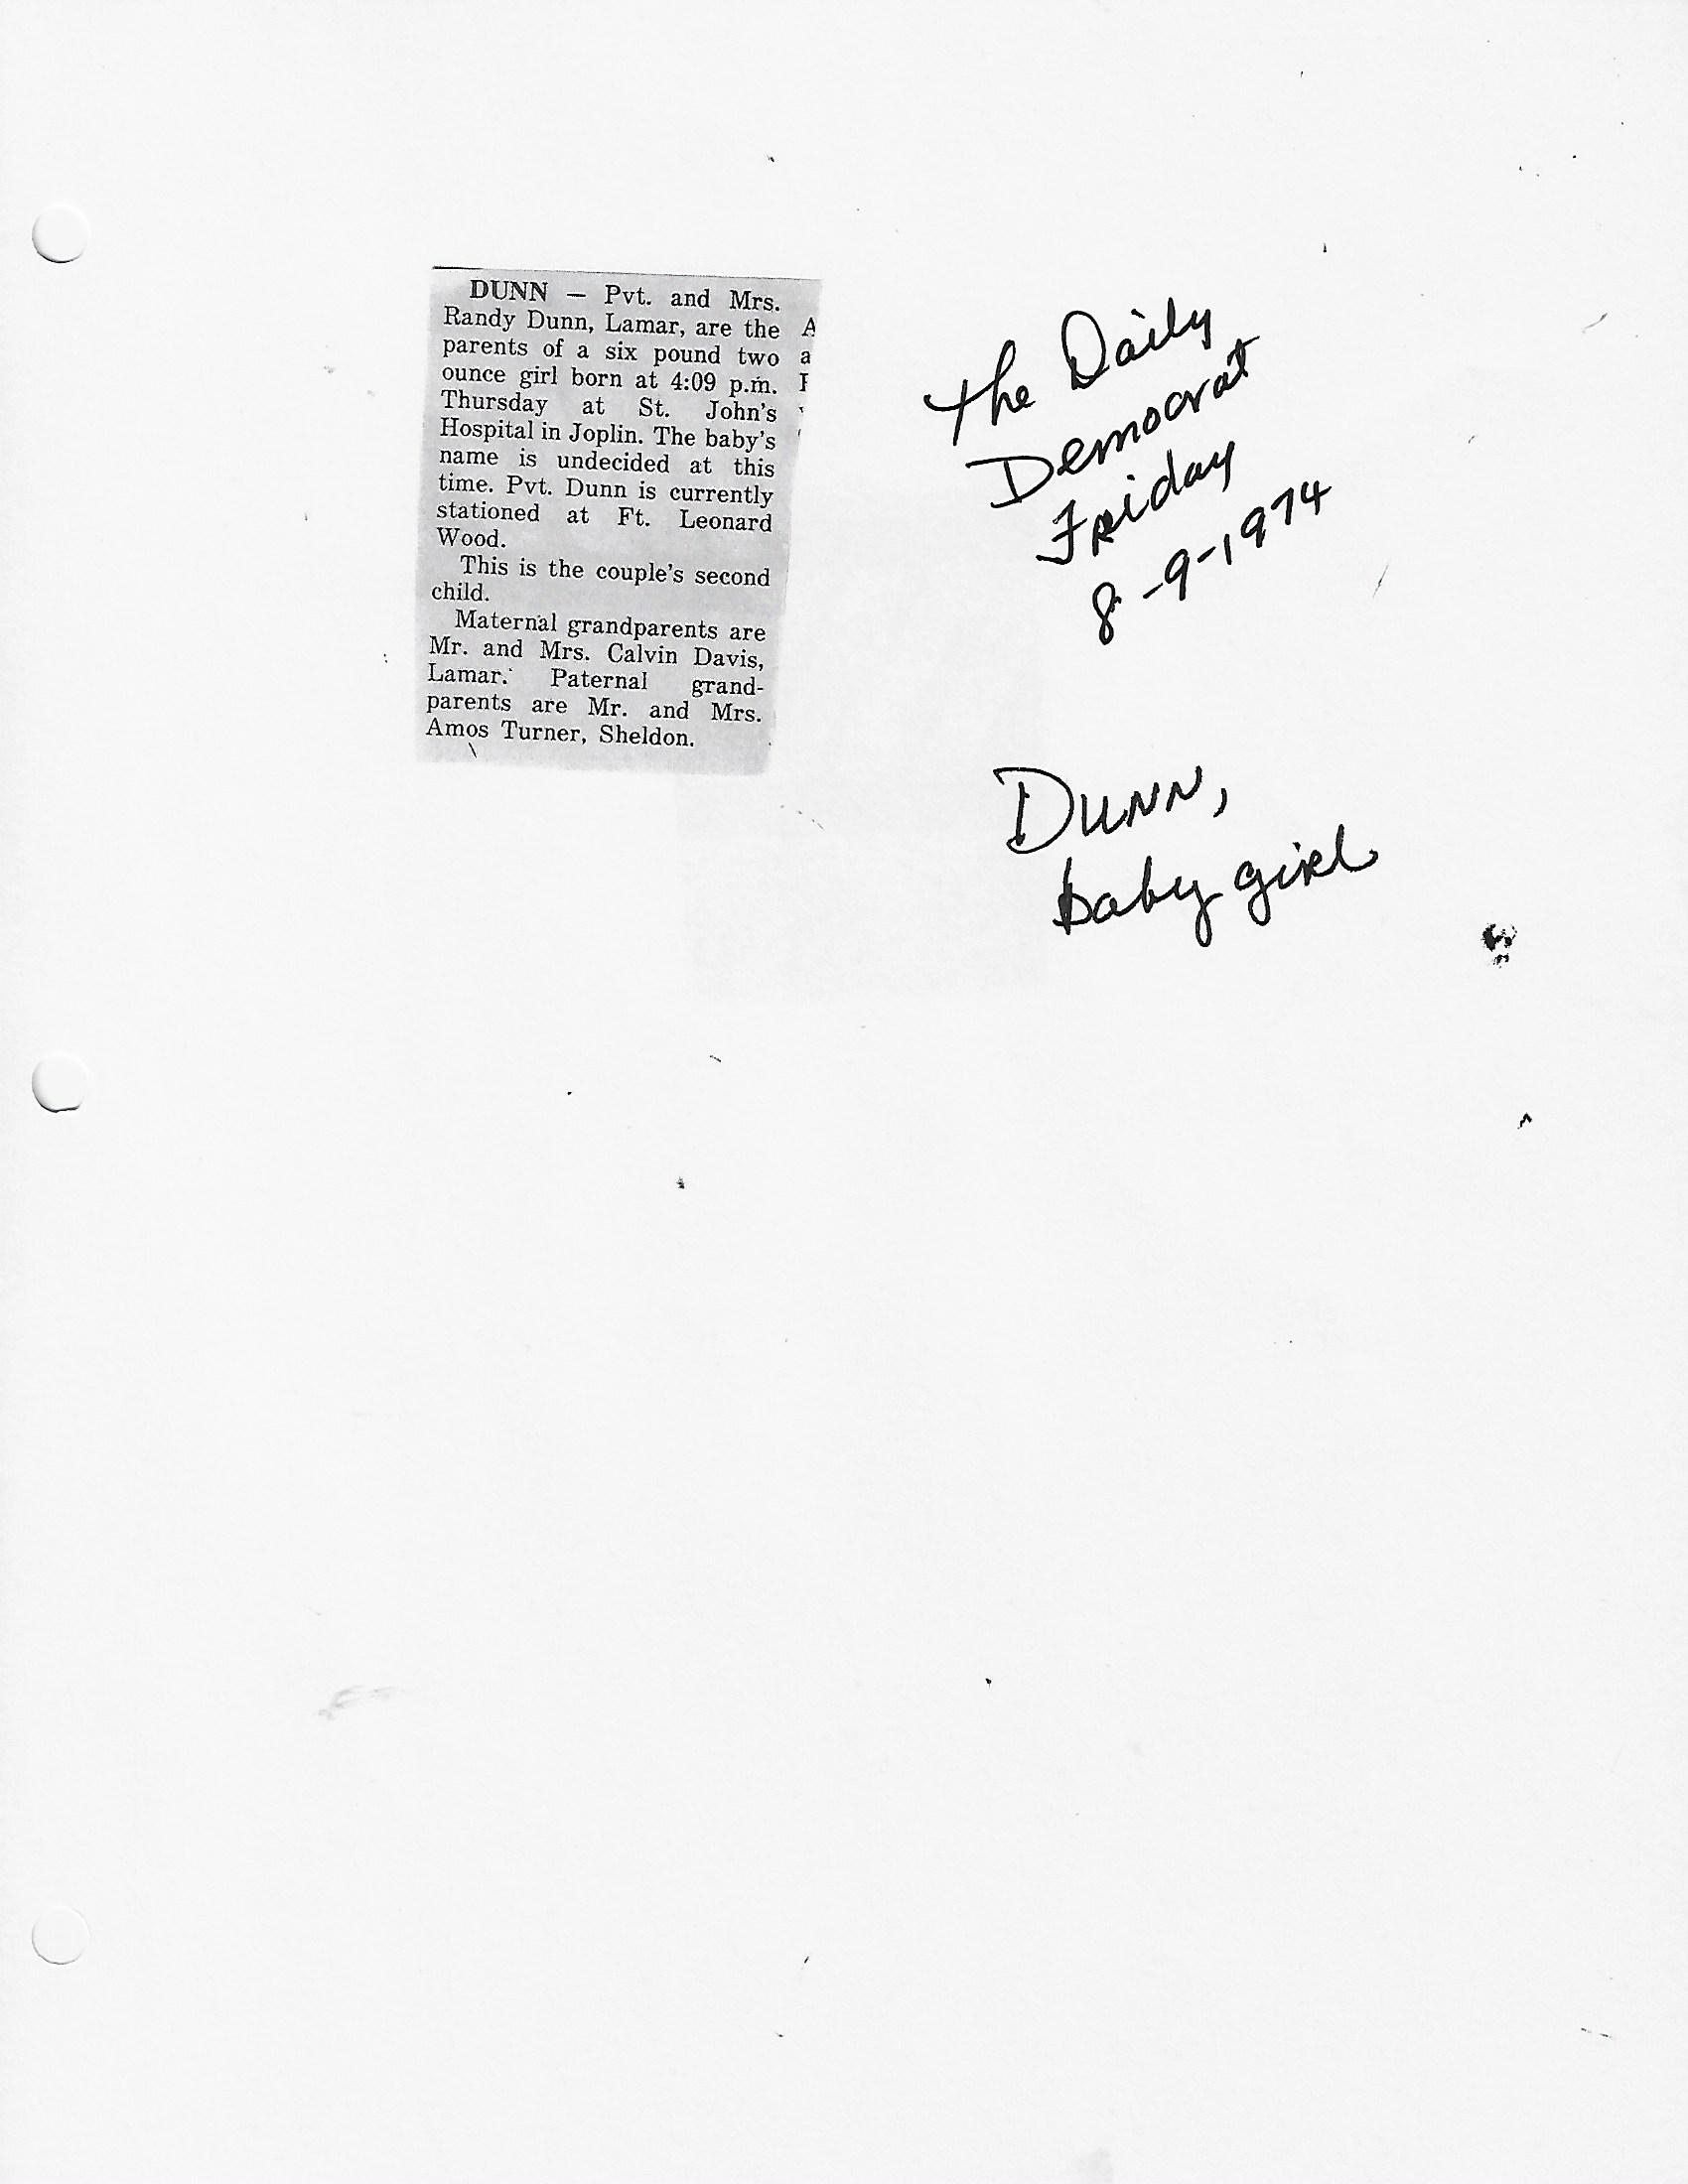 DUNN — Pvt. and Mrs.
Randy Dunn, Lamar, are the
parents of a six pound two
ounce girl born at 4:09 p.m.
Thursday at St. John's
Hospital in Joplin. The baby's
name is undecided at this
time. Pvt. Dunn is currently
stationed at Ft. Leonard
Wood.
This is the couple's second
child.
Maternal grandparents are
Mr. and Mrs. Calvin Davis,
Lamar. Paternal grand-
parents are Mr. and Mrs.
Amos Turner, Sheldon.
The Daily
Democrat
Friday
8-9-1974
DUNN,
baby girl